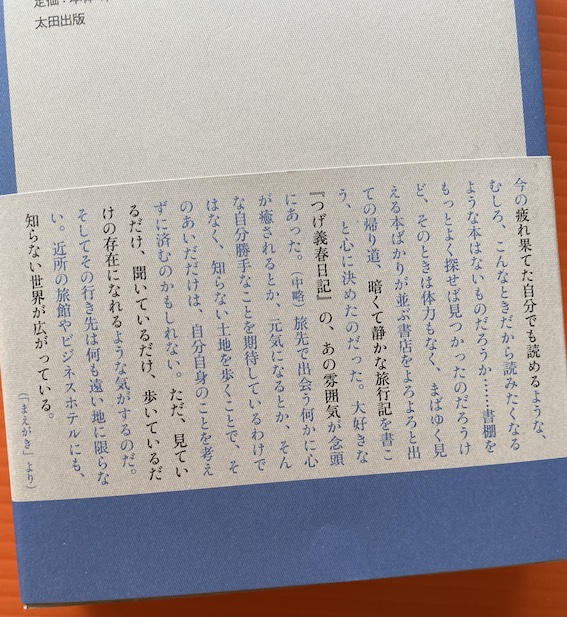 定価：本体
太田出版
今の疲れ果てた自分でも読めるような、
むしろ、こんなときだから読みたくなる
ような本はないものだろうか……書棚を
もっとよく探せば見つかったのだろうけ
ど、そのときは体力もなく、まばゆく見
える本ばかりが並ぶ書店をよろよろと出
ての帰り道、暗くて静かな旅行記を書こ
う、と心に決めたのだった。大好きな
『つげ義春日記』の、あの雰囲気が念頭
にあった。（中略）旅先で出会う何かに心
が癒されるとか、元気になるとか、そん
な自分勝手なことを期待しているわけで
はなく、知らない土地を歩くことで、そ
のあいだだけは、自分自身のことを考え
ずに済むのかもしれない。ただ、見てい
るだけ、聞いているだけ、歩いているだ
けの存在になれるような気がするのだ。
そしてその行き先は何も遠い地に限らな
い。近所の旅館やビジネスホテルにも、
知らない世界が広がっている。
（「まえがき」より）